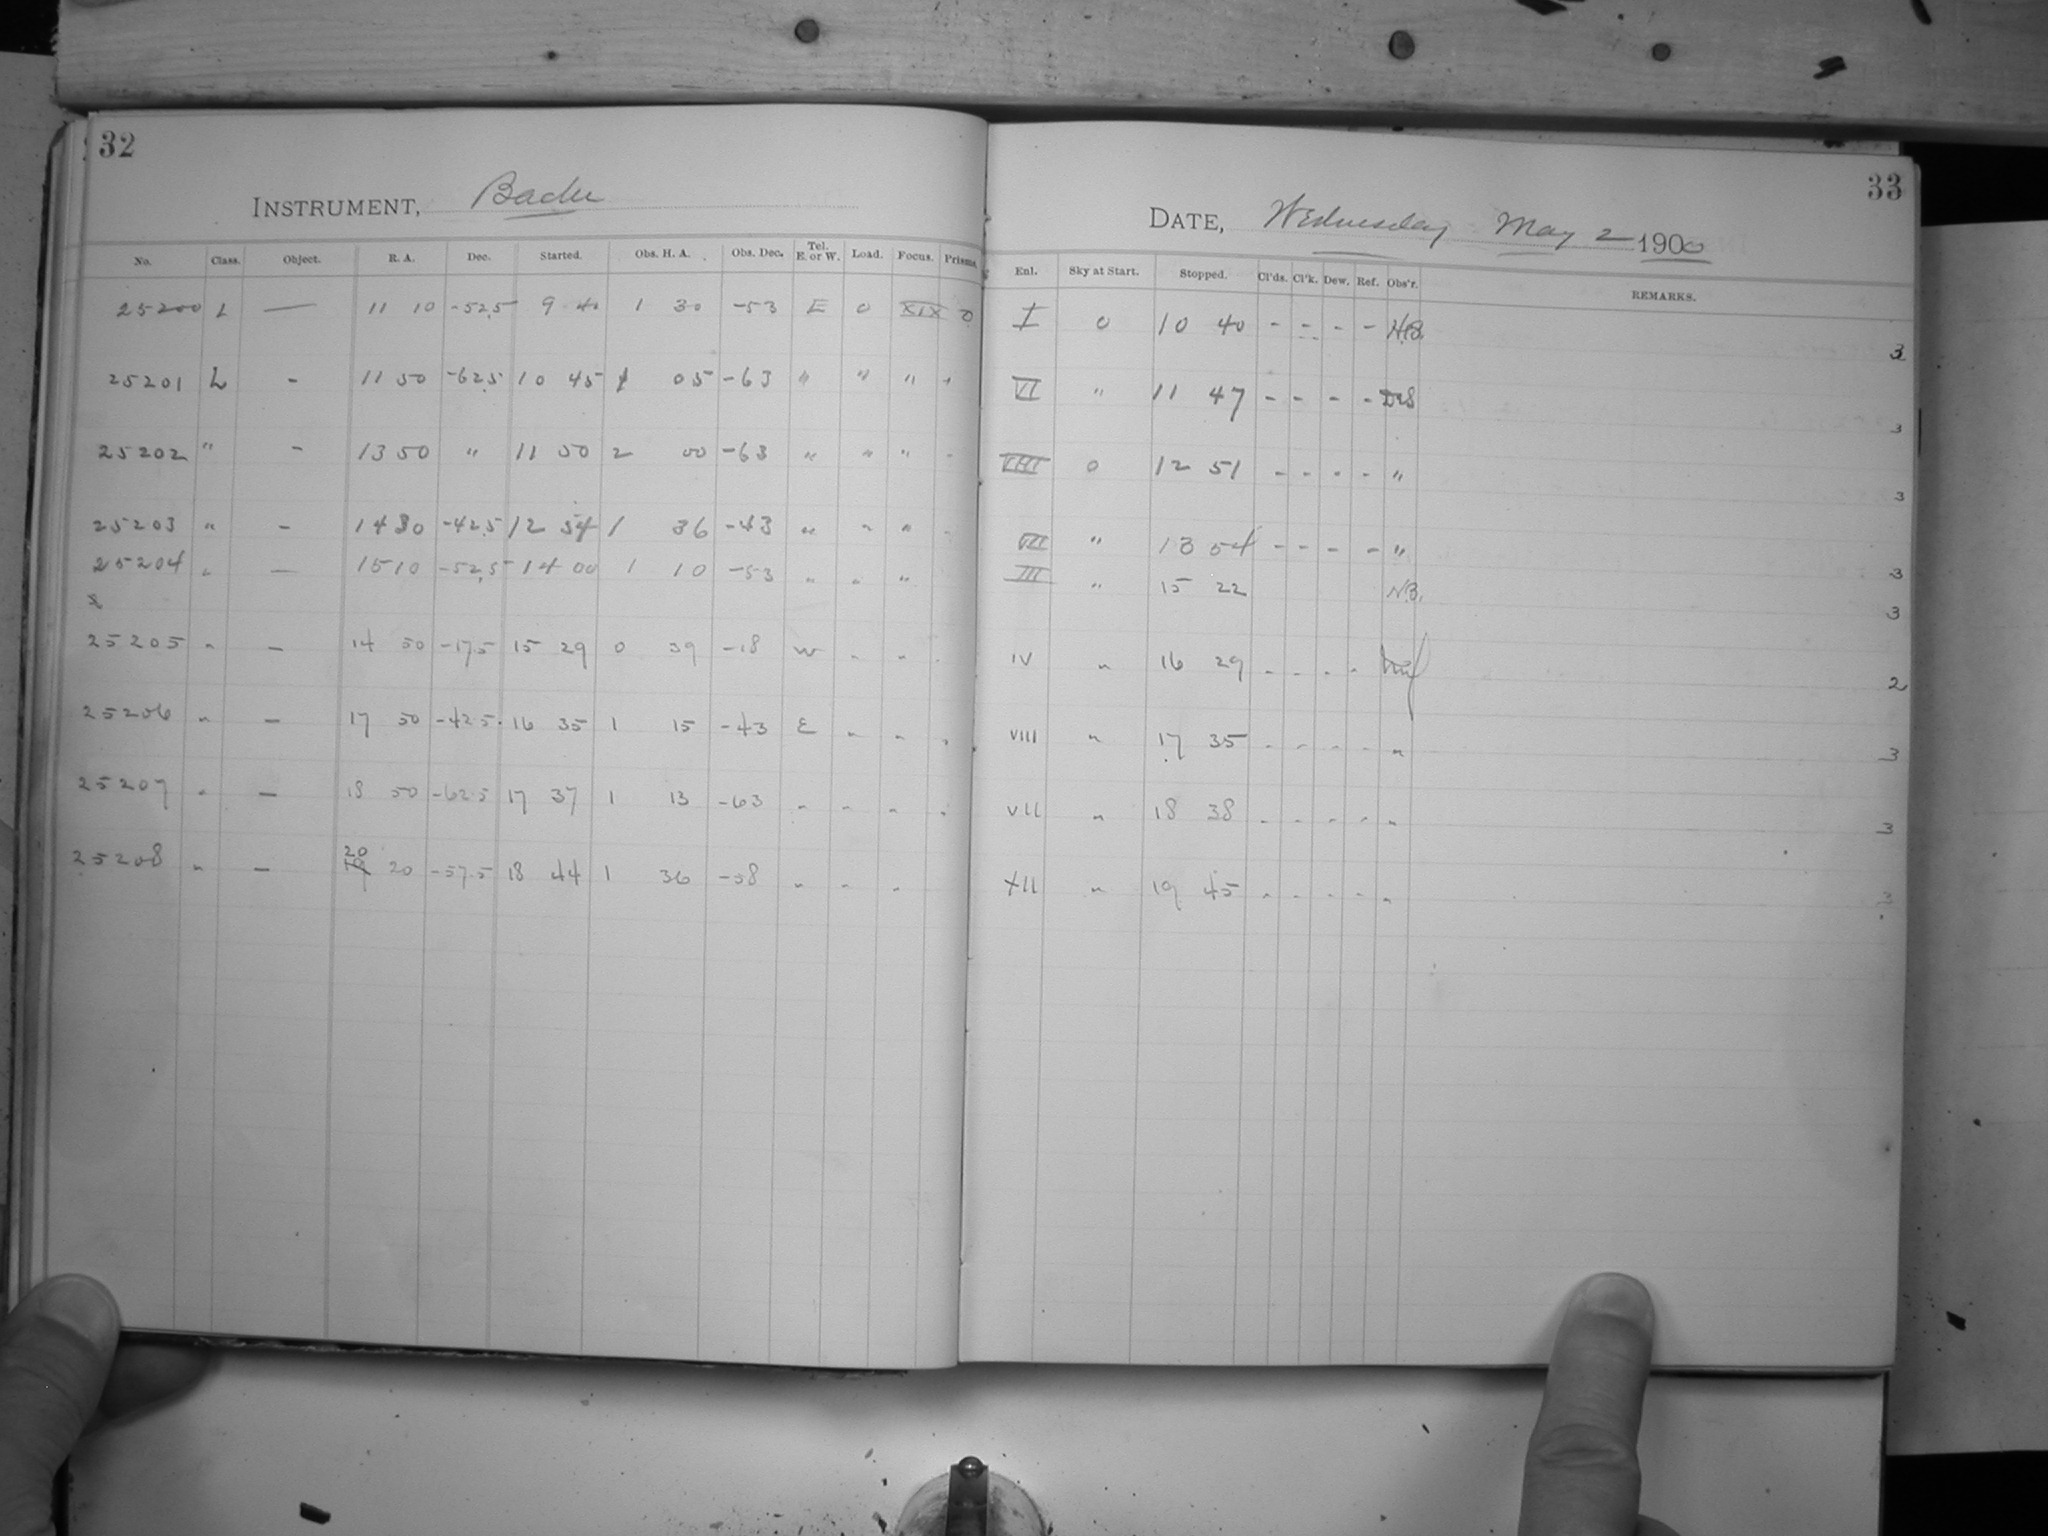 32
INSTRUMENT, Bache
No. Class. Object. R. A. Dec. Started. Obs. H. A. Obs. Dec. Tel. E. or W. Load. Focus. Prisms.
25200 L — 11 10 -52.5 9 40 1 30 -53 E 0 XIX 0
25201 L - 11 50 -62.5 10 45 1 05 -63 " " " "
25202 " - 13 50 " 11 50 2 00 -63 " " " "
25203 " - 14 30 -42.5 12 54 1 36 -43 " " " "
25204 " — 15 10 -52.5 14 00 1 10 -53 " " "
25205 " - 14 50 -17.5 15 29 0 39 -18 W " " "
25206 " - 17 50 -42.5 16 35 1 15 -43 E " " "
25207 " - 18 50 -62.5 17 37 1 13 -63 " " " "
25208 " - 20 20 -57.5 18 44 1 36 -58 " " "
33
DATE, Wednesday May 2 1900
Enl. Sky at Start. Stopped. Cl'ds. Cl'k. Dew. Ref. Obs'r. REMARKS.
I 0 10 40 - - - - 3
VI " 11 47 - - - - 3
VIII 0 12 51 - - - - " 3
VII " 13 54 - - - - " 3
III " 15 22 3
IV " 16 29 - - - - 2
VIII " 17 35 - - - - " 3
VII " 18 38 - - - - " 3
XII " 19 45 - - - - " 3